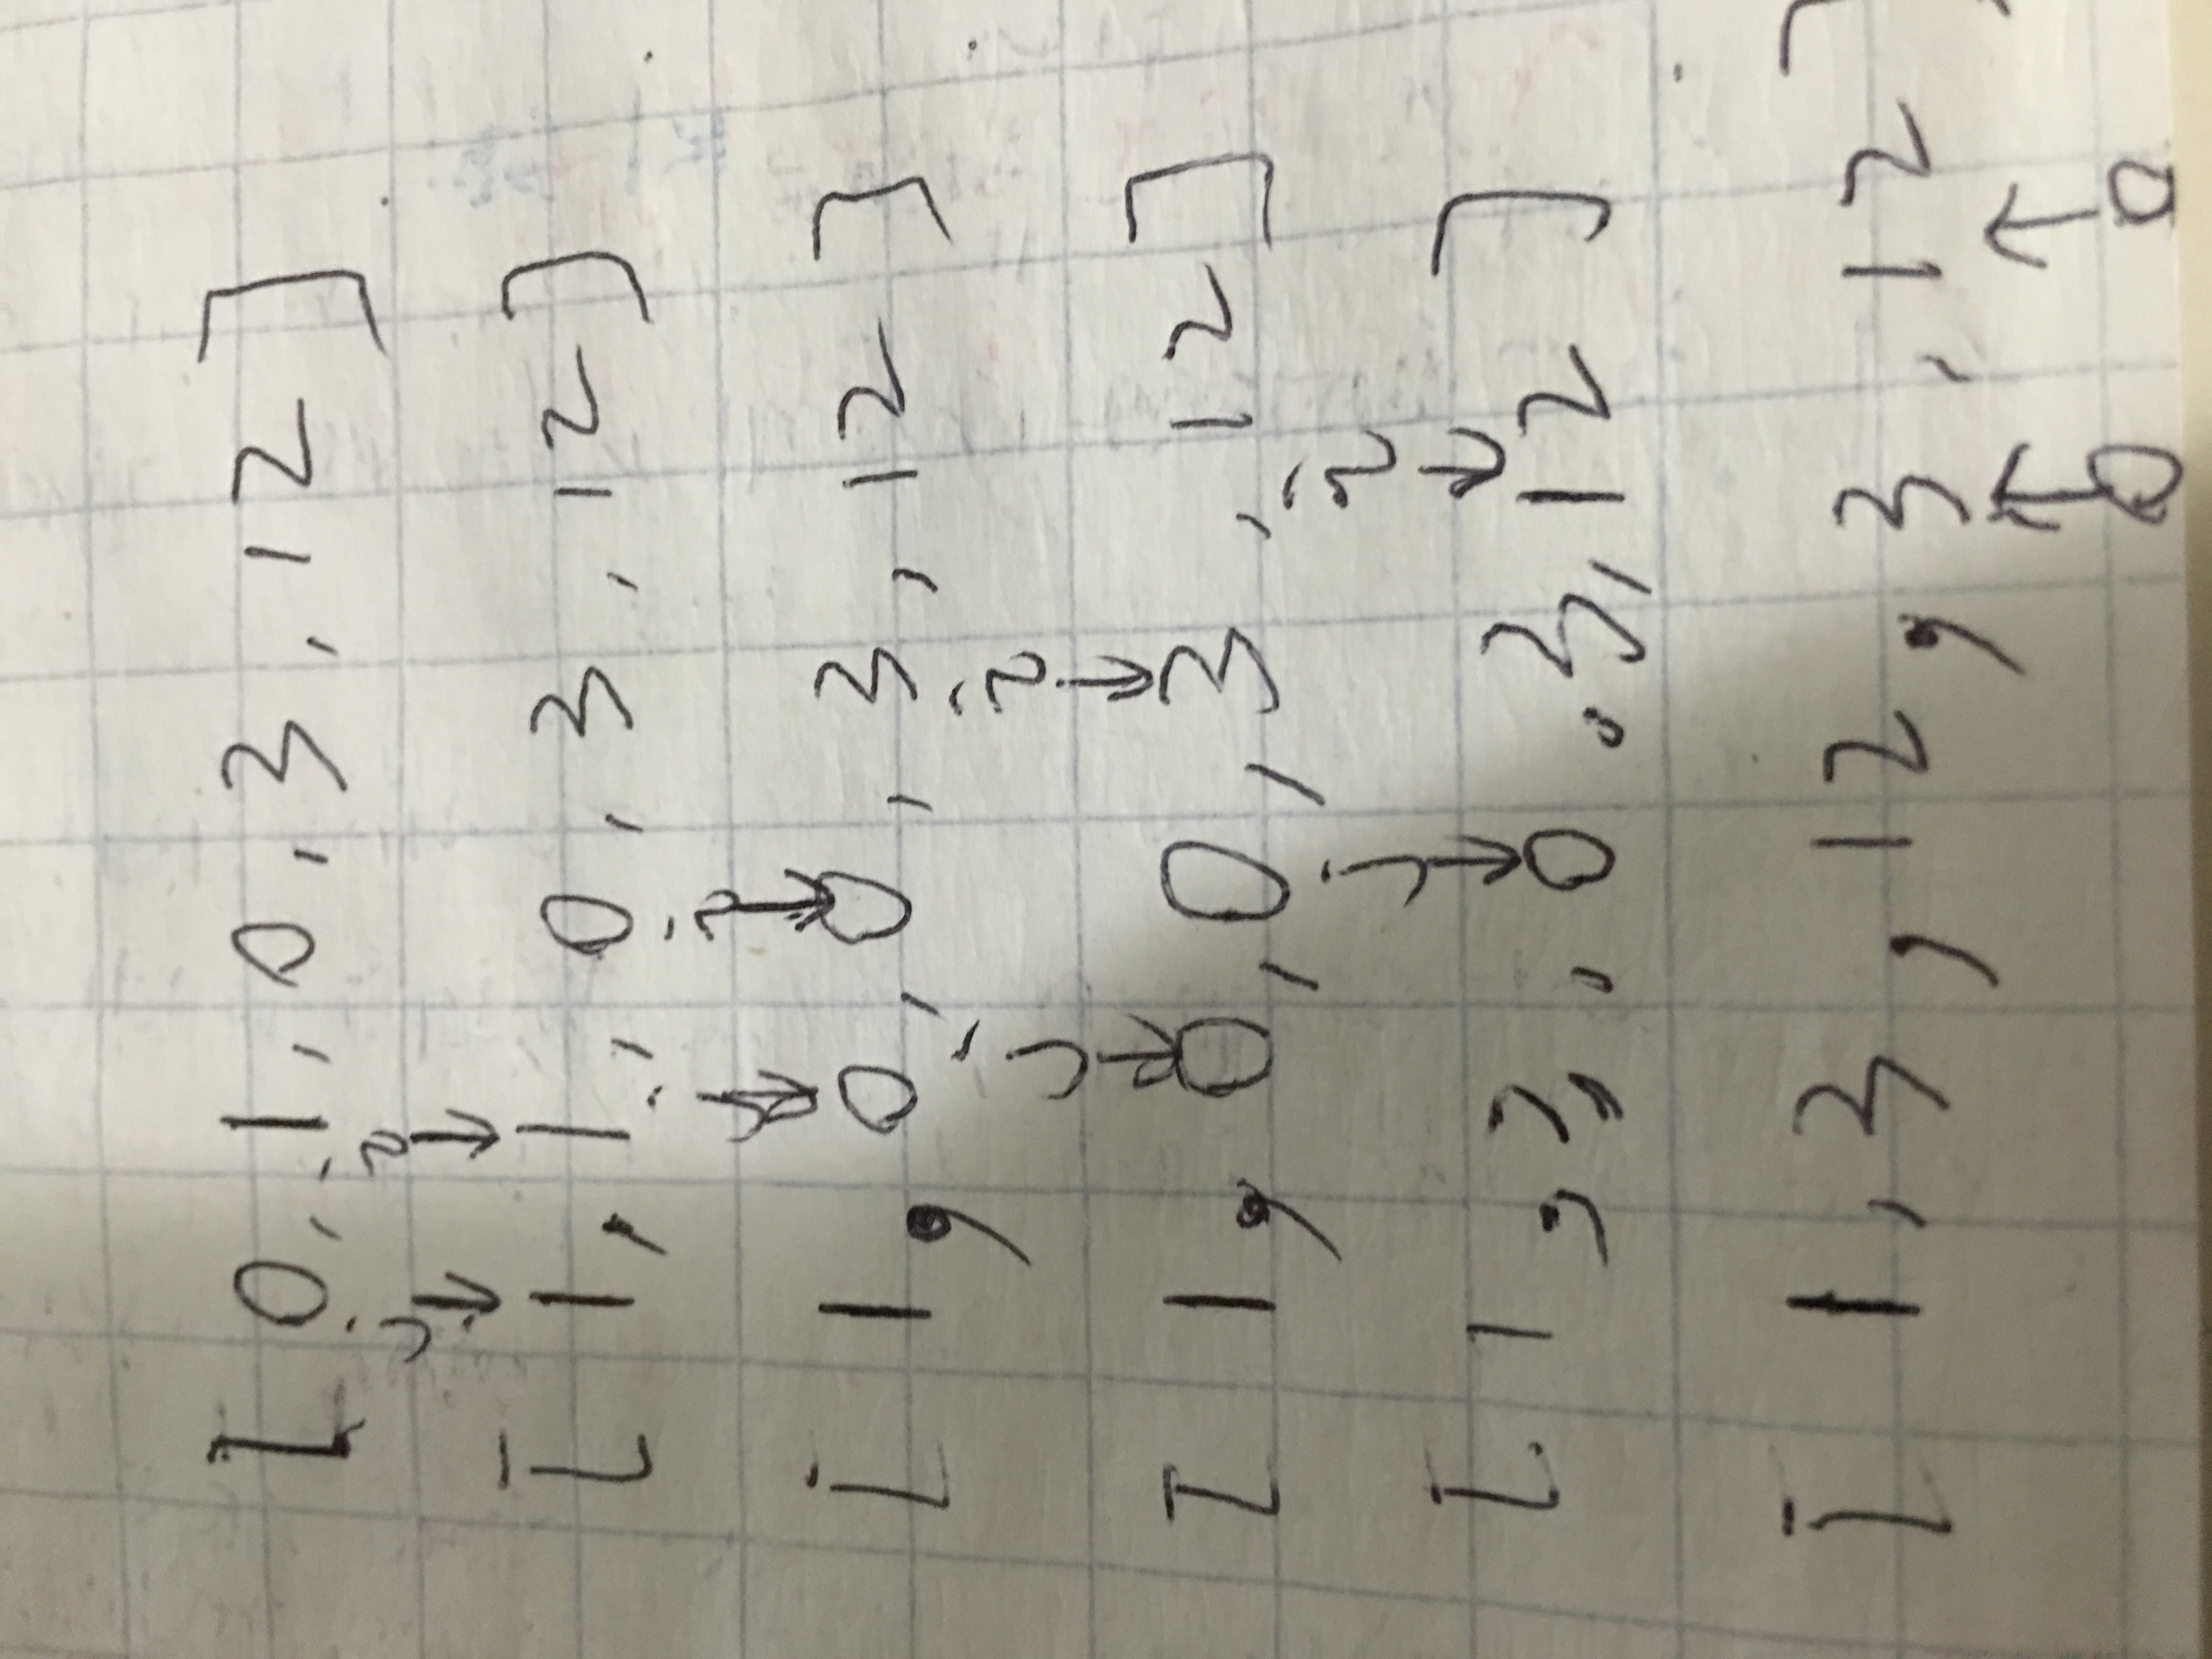 [ 0, 1, 0, 3, 12 ]
j i
↓ ↓
[ 1, 1, 0, 3, 12 ]
j i
↓ ↓
[ 1, 0, 0, 3, 12 ]
j i
↓ ↓
[ 1, 0, 0, 3, 12 ]
j i
↓ ↓
[ 1, 3, 0, 3, 12 ]
[ 1, 3, 12, 3, 12 ]
↑ ↑
0 0